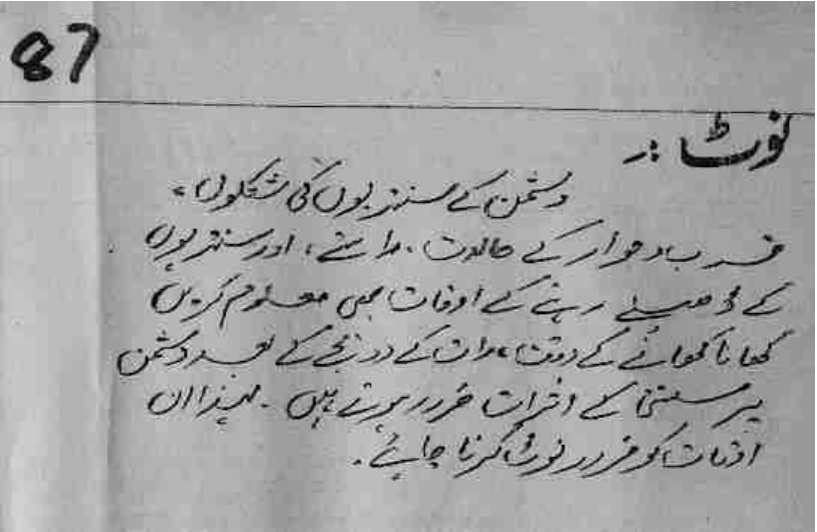 87
نوٹ :۔
دشمن کے سنتریوں کی شکلوں،
قرب و جوار کے حالات، راستے، اور سنتریوں
کے ڈھیلے رہنے کے اوقات بھی معلوم کریں
کھانا کھانے کے وقت، رات کے دو بجے کے بعد دشمن
پر سستی کے اثرات ضرور ہوتے ہیں۔ لہٰذا ان
اوقات کو ضرور نوٹ کرنا چاہئے۔